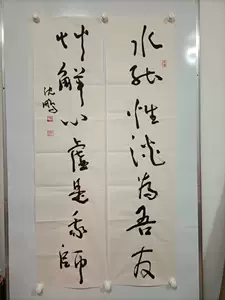 水能性淡為吾友
竹解心虛是我師
沈鵬